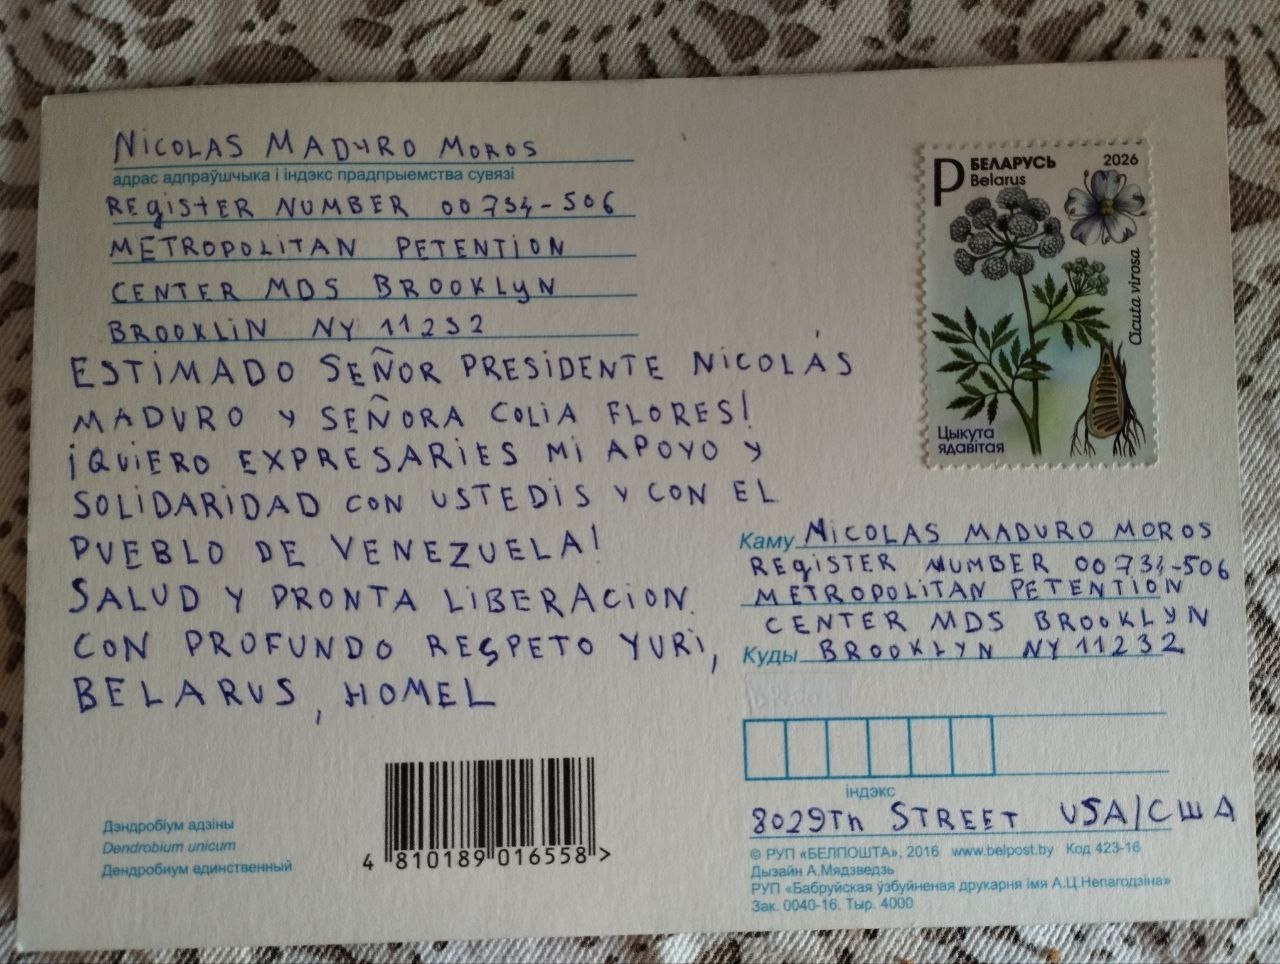 NICOLAS MADURO MOROS
адрас адпраўшчыка і індэкс прадпрыемства сувязі
REGISTER NUMBER 00734-506
METROPOLITAN PETENTION
CENTER MDS BROOKLYN
BROOKLIN NY 11232
ESTIMADO SEÑOR PRESIDENTE NICOLÁS
MADURO Y SEÑORA COLIA FLORES!
¡QUIERO EXPRESARIES MI APOYO Y
SOLIDARIDAD CON USTEDIS Y CON EL
PUEBLO DE VENEZUELA!
SALUD Y PRONTA LIBERACION.
CON PROFUNDO RESPETO YURI,
BELARUS, HOMEL
P БЕЛАРУСЬ 2026
Belarus
Cicuta virosa
Цыкута
ядавітая
Каму NICOLAS MADURO MOROS
REGISTER NUMBER 00734-506
METROPOLITAN PETENTION
CENTER MDS BROOKLYN
Куды BROOKLYN NY 11232
індэкс
8029Th STREET USA/США
© РУП «БЕЛПОШТА», 2016 www.belpost.by Код 423-16
Дызайн А.Мядзведзь
РУП «Бабруйская ўзбуйненая друкарня імя А.Ц.Непагодзіна»
Зак. 0040-16. Тыр. 4000
Дэндробіум адзіны
Dendrobium unicum
Дендробиум единственный
4 810189 016558 >